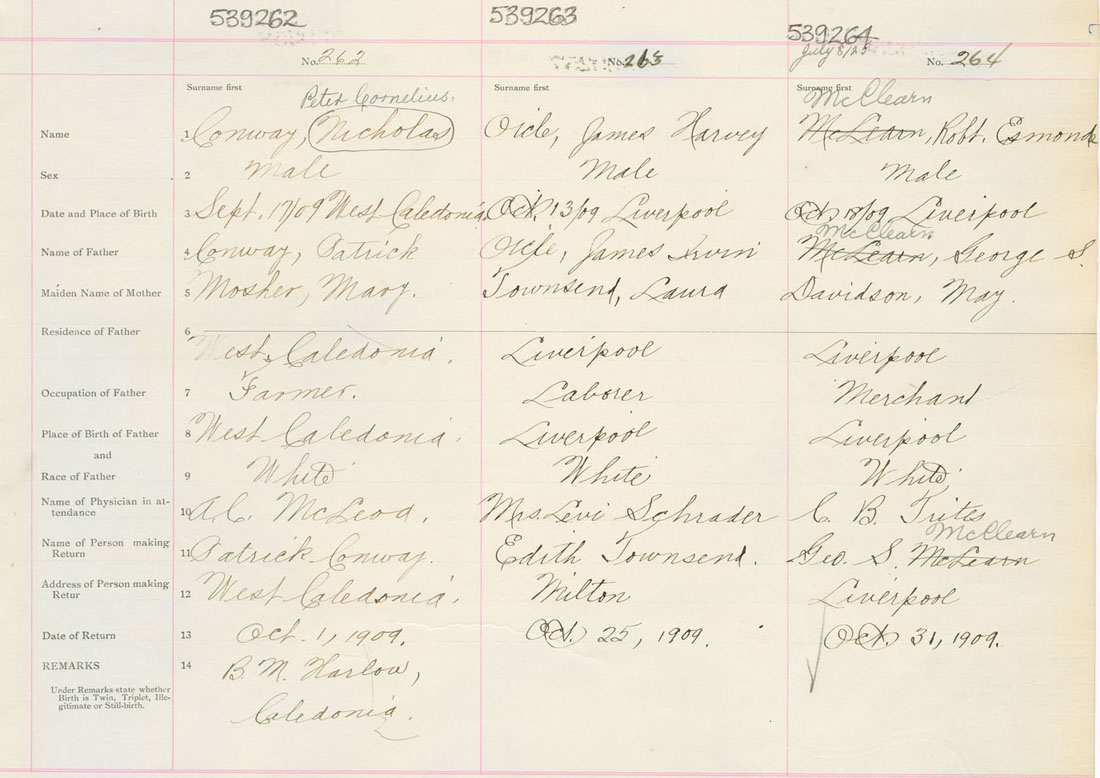 539262 539263 539264
July 8/20
No. 262 No. 263 No. 264
Surname first Surname first Surname first
Peter Cornelius. McClearn
Name 1 Conway, Nicholas Oicle, James Harvey McLearn, Robt. Esmonde
Sex 2 Male Male Male
Date and Place of Birth 3 Sept. 17/09 West Caledonia Oct. 13/09 Liverpool Oct. 18/09 Liverpool
McClearn
Name of Father 4 Conway, Patrick Oicle, James Irvin McLearn, George S.
Maiden Name of Mother 5 Mosher, Mary. Townsend, Laura Davidson, May.
Residence of Father 6
West Caledonia. Liverpool Liverpool
Occupation of Father 7 Farmer. Laborer Merchant
Place of Birth of Father 8 West Caledonia. Liverpool Liverpool
and
Race of Father 9 White White White
Name of Physician in at-
tendance 10 A.C. McLeod. Mrs. Levi Schrader C. B. Trites
McClearn
Name of Person making
Return 11 Patrick Conway. Edith Townsend. Geo. S. McLearn
Address of Person making
Retur 12 West Caledonia. Milton Liverpool
Date of Return 13 Oct. 1, 1909. Oct. 25, 1909. Oct. 31, 1909.
REMARKS 14 B. M. Harlow,
Under Remarks state whether
Birth is Twin, Triplet, Ille-
gitimate or Still-birth.
Caledonia.